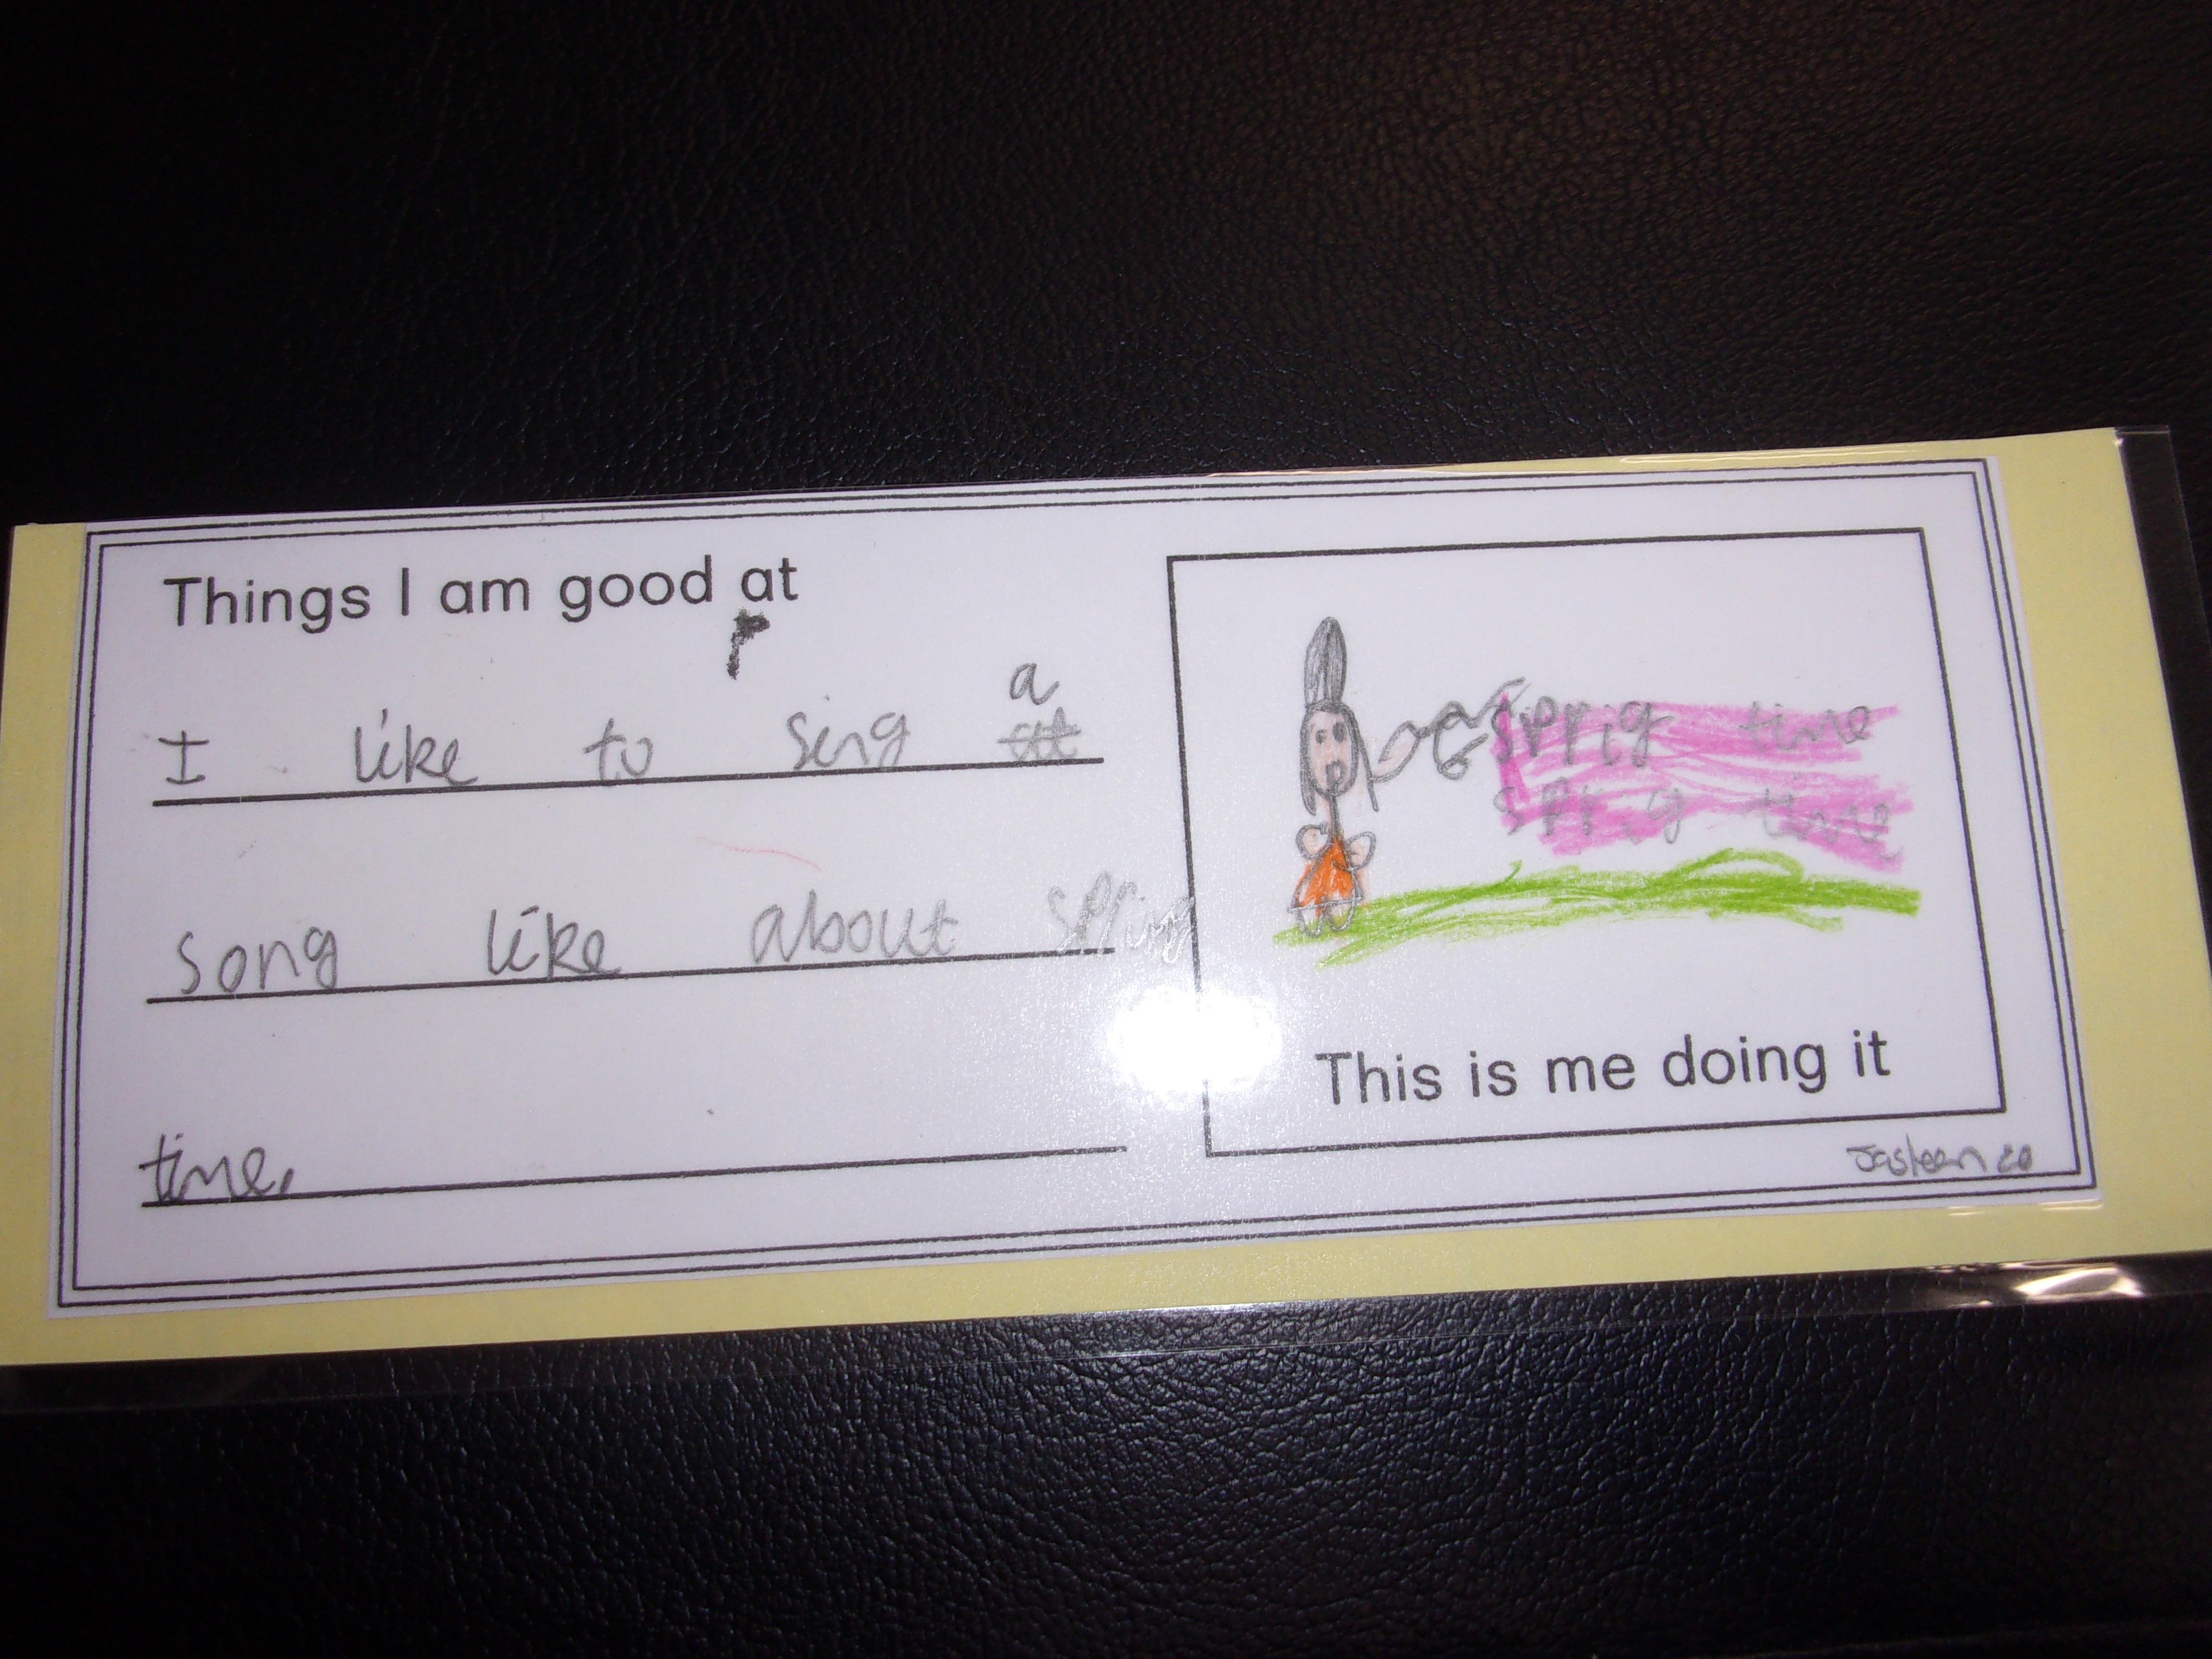 Things I am good at
I like to sing a
song like about spring
time.
sprig time
sprig time
This is me doing it